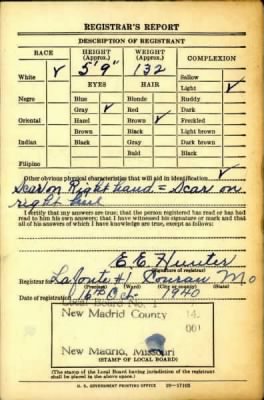 REGISTRAR'S REPORT
DESCRIPTION OF REGISTRANT
RACE HEIGHT (Approx.) WEIGHT (Approx.) COMPLEXION
White ✓ 5' 9" 132 Sallow
EYES HAIR Light ✓
Negro Blue Blonde Ruddy
Gray ✓ Red Dark
Oriental Hazel Brown ✓ Freckled
Brown Black Light brown
Indian Black Gray Dark brown
Bald Black
Filipino
Other obvious physical characteristics that will aid in identification ✓
Scar on Right hand = Scar on
right
I certify that my answers are true; that the person registered has read or has had
read to him his own answers; that I have witnessed his signature or mark and that
all of his answers of which I have knowledge are true, except as follows:
E. E. Hunter
(Signature of registrar)
Registrar for Lafonte #1 Conran Mo
(Precinct) (Ward) (City or county) (State)
Date of registration Oct. 1940
Local Board No. 1
New Madrid County 14
001
New Madrid, Missouri
(STAMP OF LOCAL BOARD)
(The stamp of the Local Board having jurisdiction of the registrant
shall be placed in the above space.)
U. S. GOVERNMENT PRINTING OFFICE 16—17105